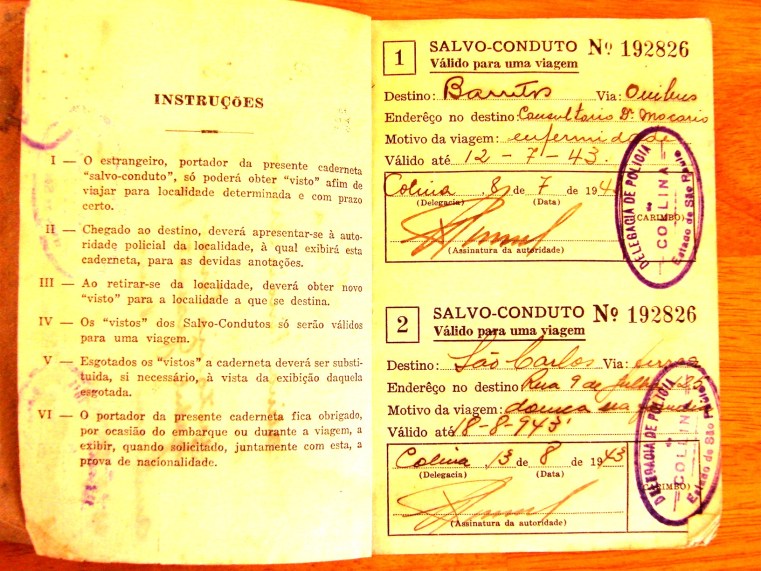 INSTRUÇÕES
I — O estrangeiro, portador da presente caderneta
"salvo-conduto", só poderá obter "visto" afim de
viajar para localidade determinada e com prazo
certo.
II — Chegado ao destino, deverá apresentar-se à auto-
ridade policial da localidade, à qual exibirá esta
caderneta, para as devidas anotações.
III — Ao retirar-se da localidade, deverá obter novo
"visto" para a localidade a que se destina.
IV — Os "vistos" dos Salvo-Condutos só serão válidos
para uma viagem.
V — Esgotados os "vistos" a caderneta deverá ser substi-
tuida, si necessário, à vista da exibição daquela
esgotada.
VI — O portador da presente caderneta fica obrigado,
por ocasião do embarque ou durante a viagem, a
exibir, quando solicitado, juntamente com esta, a
prova de nacionalidade.
1 SALVO-CONDUTO Nº 192826
Válido para uma viagem
Destino: Barretos Via: Onibus
Enderêço no destino: Consultorio Dr.
Motivo da viagem: enfermidade
Válido até 12-7-43.
Colina 8 de 7 de 194
(Delegacia) (Data)
(CARIMBO)
(Assinatura da autoridade)
DELEGACIA DE POLICIA
COLLINA
Estado de São Paulo
2 SALVO-CONDUTO Nº 192826
Válido para uma viagem
Destino: São Carlos Via:
Enderêço no destino Rua 9 de Julho
Motivo da viagem:
Válido até 18-8-943
Colina 13 de 8 de 1943
(Delegacia) (Data)
(CARIMBO)
(Assinatura da autoridade)
DELEGACIA DE POLICIA
COLLINA
Estado de São Paulo